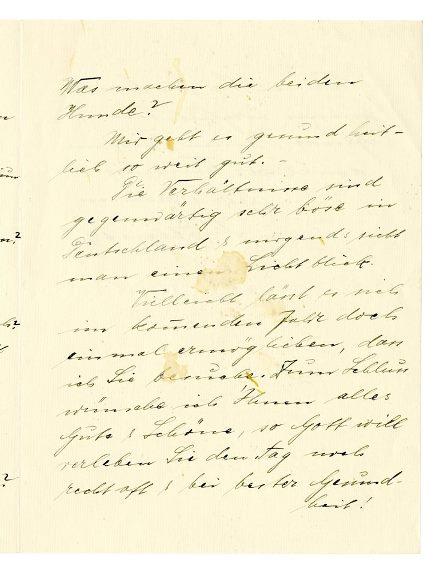 Was machen die beiden
Hunde?
Mir geht es gesundheit-
lich so weit gut. -
Die Verhältnisse sind
gegenwärtig sehr böse in
Deutschland & nirgends sieht
man einen Lichtblick.
Vielleicht lässt es sich
im komenden Jahr doch
einmal ermöglichen, dass
ich Sie besuche. Zum Schluss
wünsche ich Ihnen alles
Gute & Schöne, so Gott will
verleben Sie den Tag noch
recht oft & bei bester Gesund-
heit!